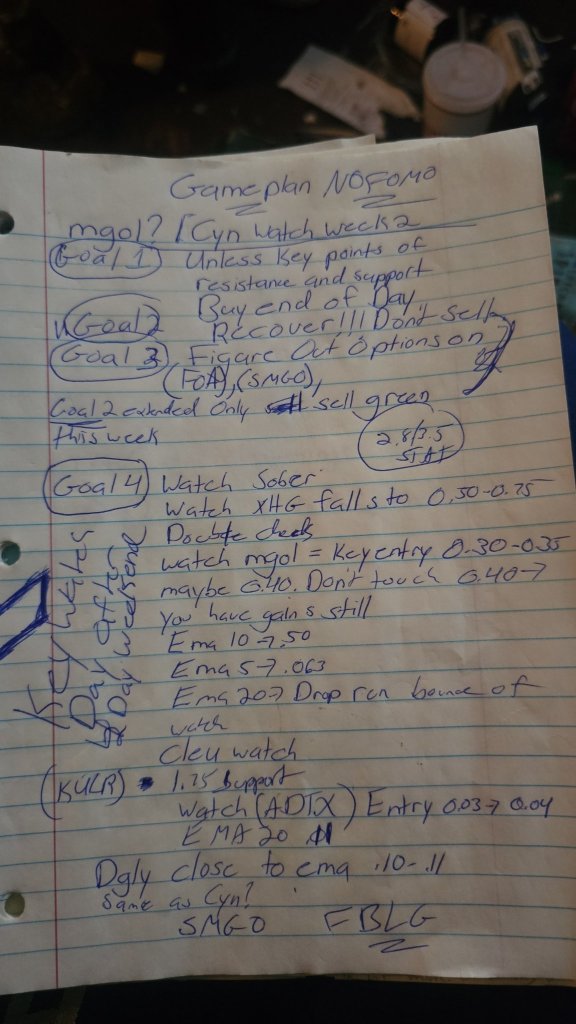 Gameplan NOFOMO
mgol? / Cyn watch week 2
Goal 1 Unless Key points of
resistance and support
Buy end of Day
Goal 2 Recover!!! Don't sell
Goal 3 Figure Out Options on
(FOA), (SMGO),
Goal 2 extended Only sell green
this week
2.8/3.5
STAT
Goal 4 Watch Sober
Watch XHG falls to 0.50-0.75
Double check
watch mgol = Key entry 0.30-0.35
maybe 0.40. Don't touch 0.40→
you have gains still
Ema 10→.50
Ema 5→.063
Ema 20→ Drop run bounce of
watch
Cleu watch
(KULR) • 1.75 support
watch (ADTX) Entry 0.03→0.04
EMA 20
Dgly close to ema .10-.11
same as Cyn?
SMGO FBLG
Key
Day After
Day weekend